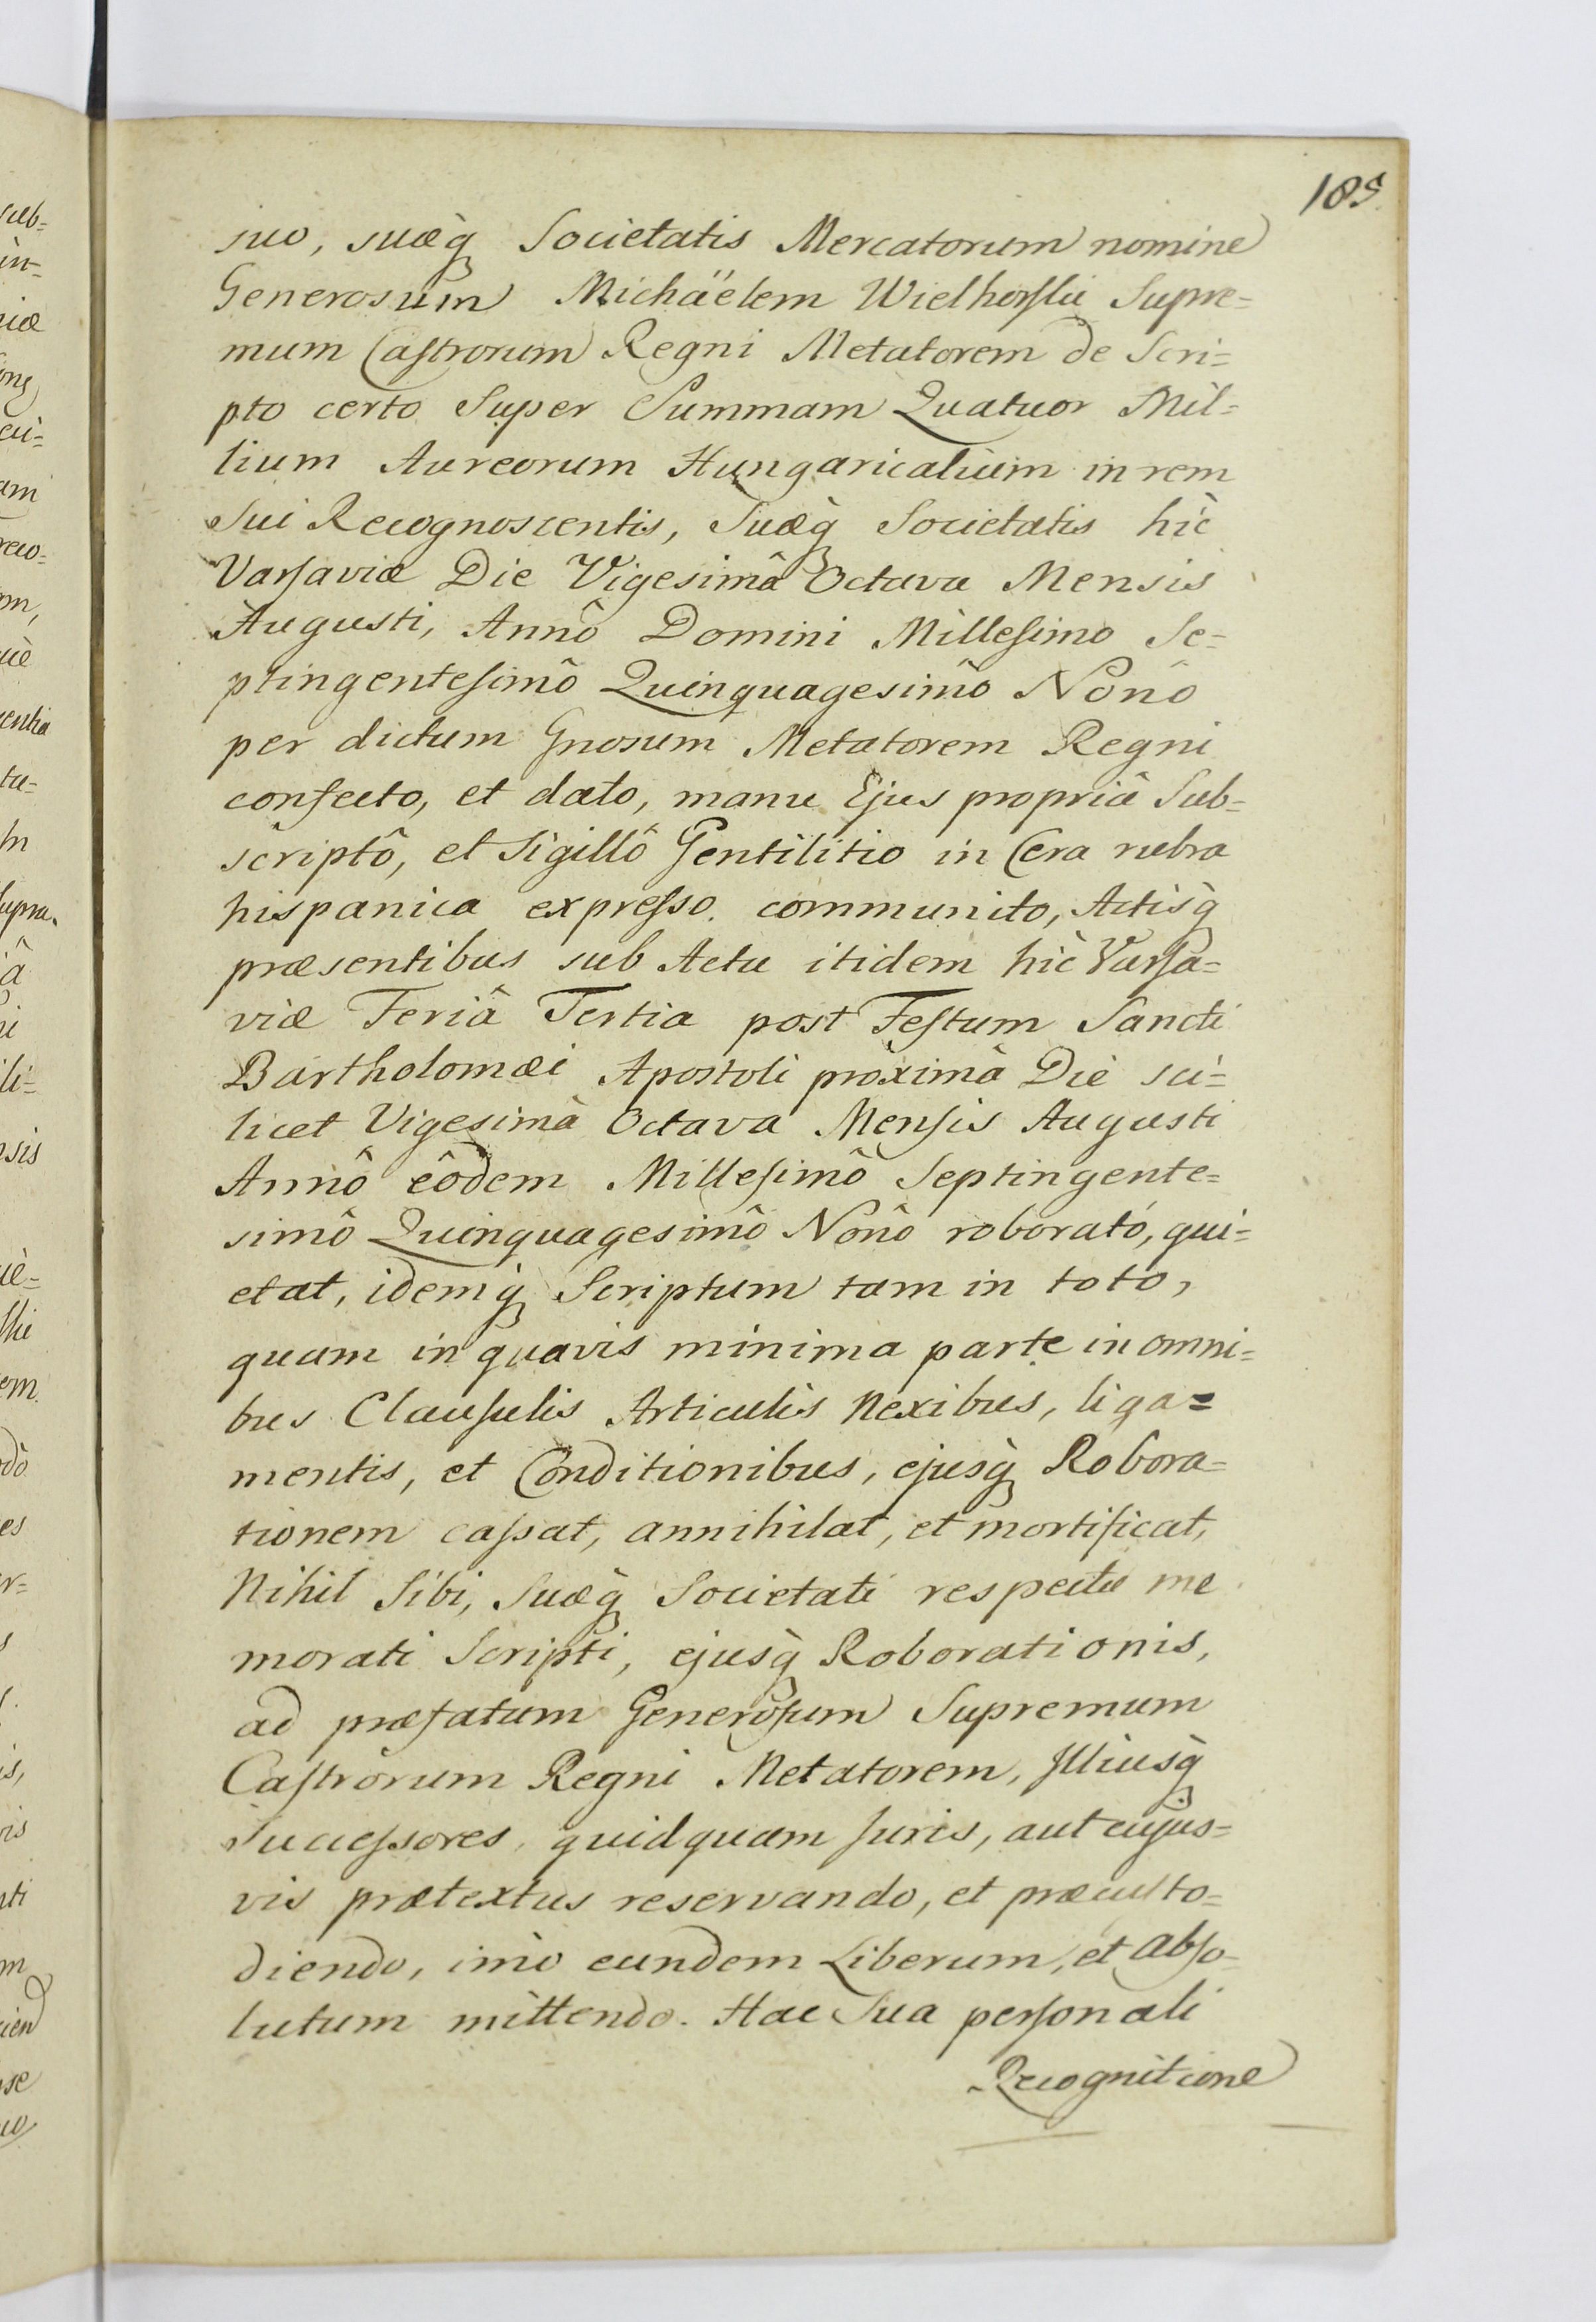 185.
suo, suæq̀ Societatis Mercatorum nomine
Generosum Michäelem Wielhorſki Supre=
mum Caſtrorum Regni Metatorem de Scri=
pto certo Super Summam Quatuor Mil=
lium Aureorum Hungaricalium in rem
Sui Recognoscentis, Suæq̀ Societatis hìc
Varſaviæ Die Vigesimâ Octava Mensis
Augusti, Annô Domini Milleſimo Se=
ptingenteſimô Quinquagesimô Nonô
per dictum Gnosum Metatorem Regni
confecto, et dato, manu Ejus propriâ Sub=
scriptô, et Sigillô Gentilitio in Cera rubra
hispanica expreſso communito, Actisq̀
præsentibus sub Actu itidem hìc Varſa=
viæ Feriâ Tertia post Feſtum Sancti
Bartholomæi Apostoli proximâ Die sci=
licet Vigesimâ Octava Menſis Augusti
Annô eôdem Milleſimô Septingente=
simô Quinquagesimô Nonô roborató, qui=
etat, idemq̀ Scriptum tam in toto,
quam in quavis minima parte in omni=
bus Clauſulis Articulis Nexibus, liga=
mentis, et Conditionibus, ejusq̀ Robora=
tionem caſsat, annihilat, et mortificat,
Nihil Sibi, Suæq̀ Societati respectu me
morati Scripti, ejusq̀ Roborationis,
ad præfatum Generôſum Supremum
Caſtrôrum Regni Metatorem, Illiusq̀
Succeſsores, quidquam Juris, aut cujus=
vis prætextus reservando, et præcuſto=
diendo, imò eundem Liberum, et Abſo=
lutum mittendo. Hac Sua perſonali
Recognitione